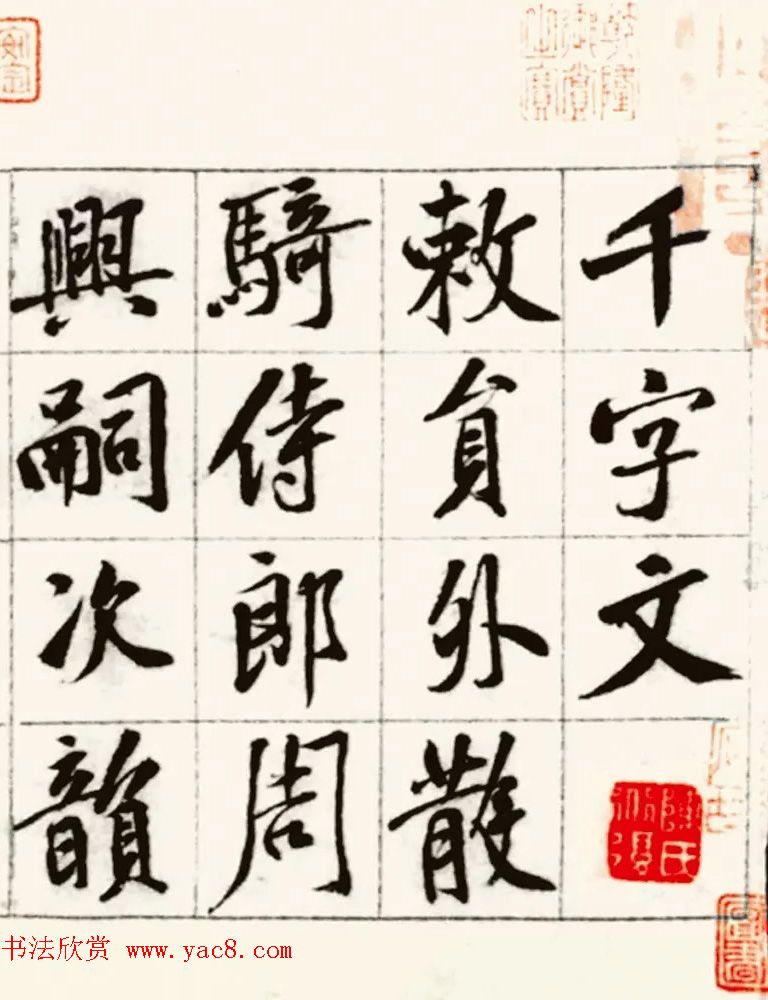 千字文
敕員外散
騎侍郎周
興嗣次韻
乾隆御賞之寶
书法欣赏 www.yac8.com